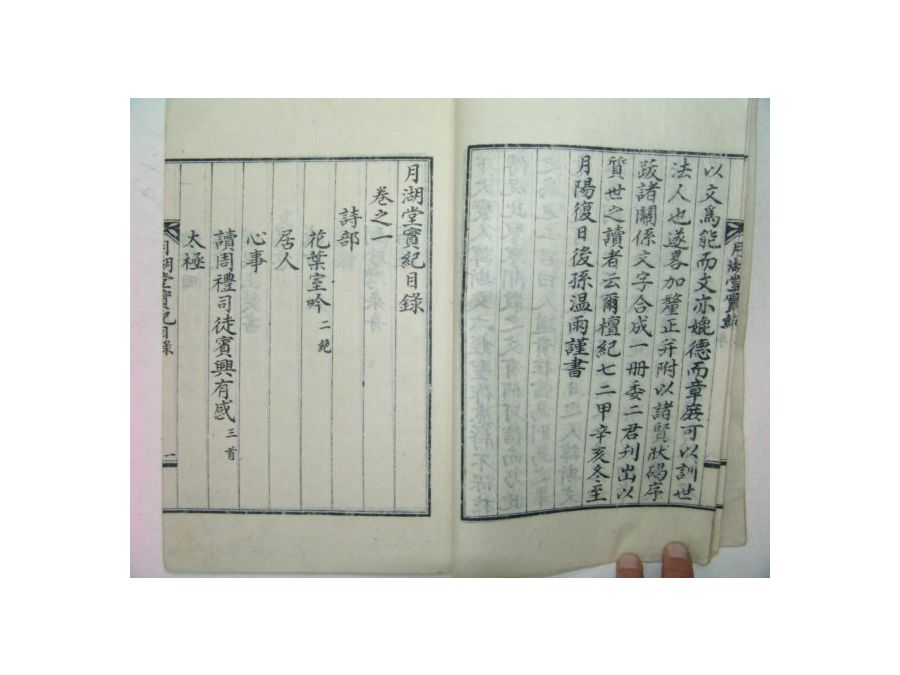 以文爲能而文亦媲德而章展可以訓世
法人也遂畧加釐正幷附以諸賢狀碣序
跋諸關係文字合成一册委二君刋出以
質世之讀者云爾檀紀七二甲辛亥冬至
月陽復日後孫温雨謹書
月湖堂實紀目錄
卷之一
詩部
花葉室吟 二絶
居人
心事
讀周禮司徒賓興有感 三首
太極
月湖堂實紀目錄 一